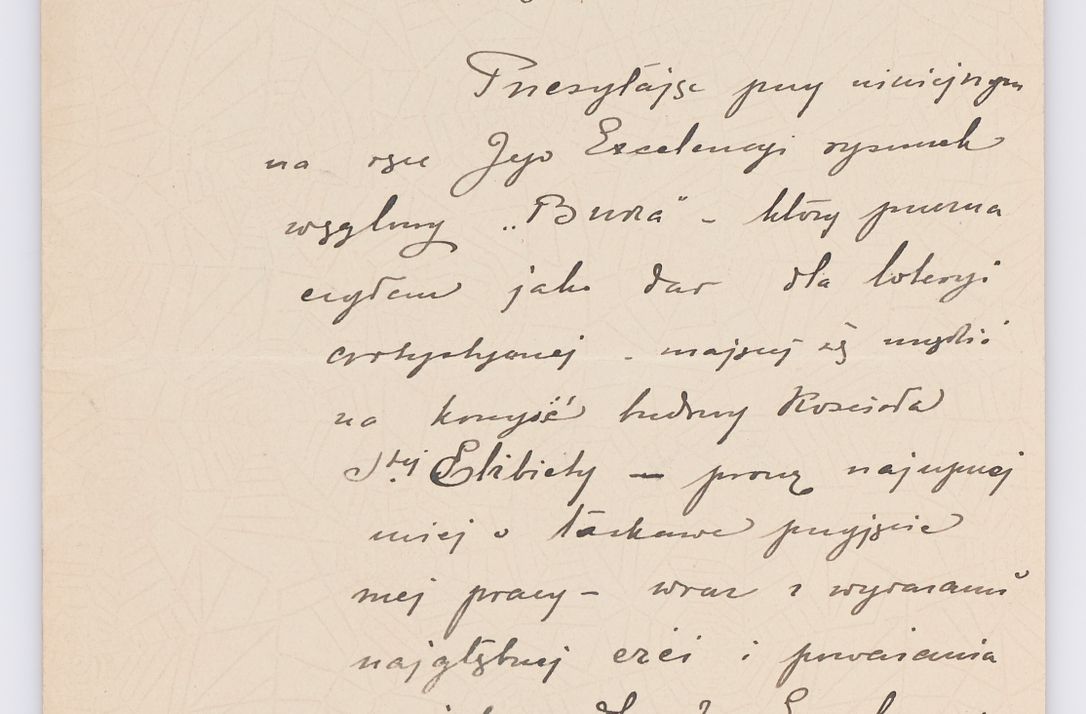 Przesyłając przy niniejszym
na ręce Jego Excelencyi rysunek
węglowy „Burza" – który przezna
czyłem jako dar dla loteryi
artystycznej – mającej się urządzić
na korzyść budowy Kościoła
S.tej Elżbiety — proszę najuprzej
miej o łaskawe przyjęcie
mej pracy – wraz z wyrazami
najgłębszej czci i poważania